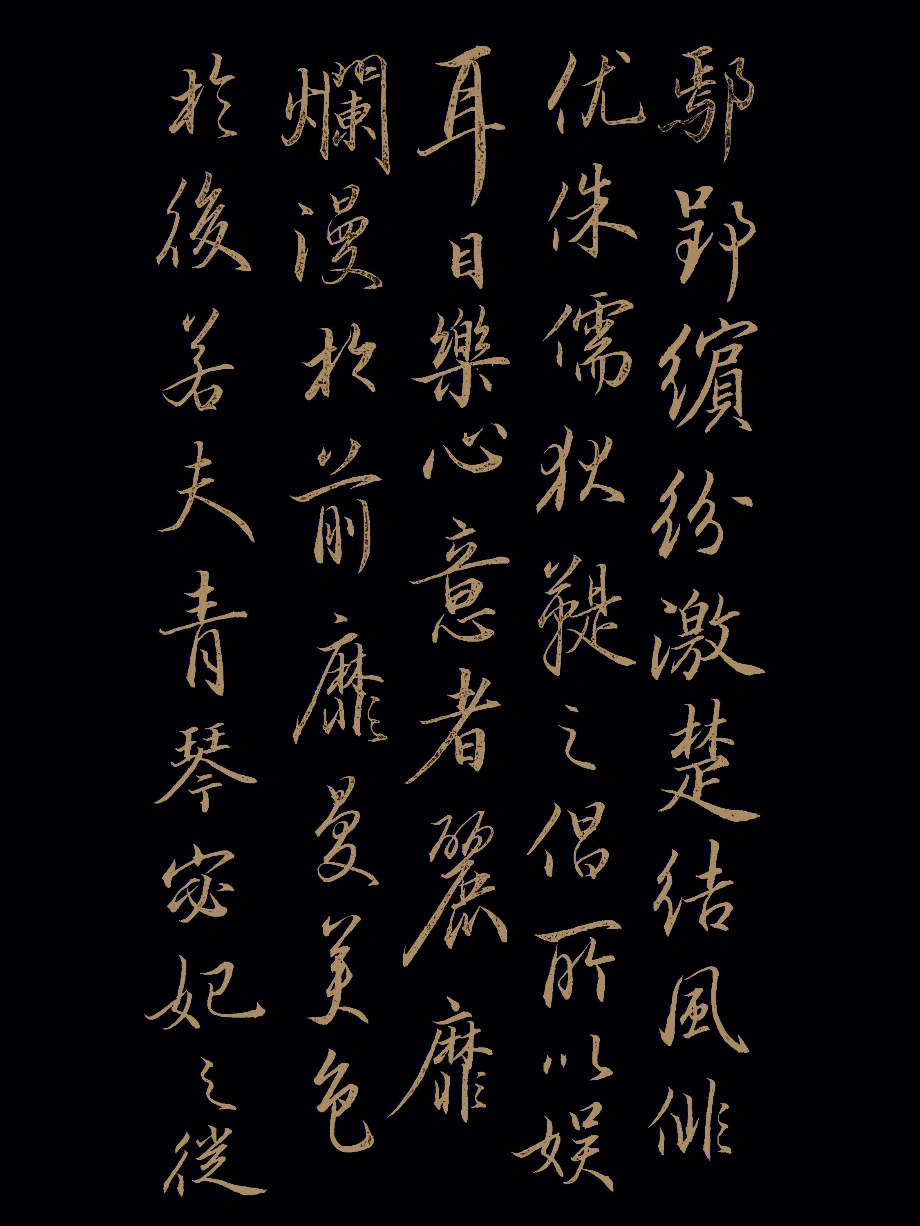 鄢郢繽紛激楚結風俳
优侏儒狄鞮之倡所以娱
耳目樂心意者麗靡
爛漫於前靡曼美色
於後若夫青琴宓妃之従